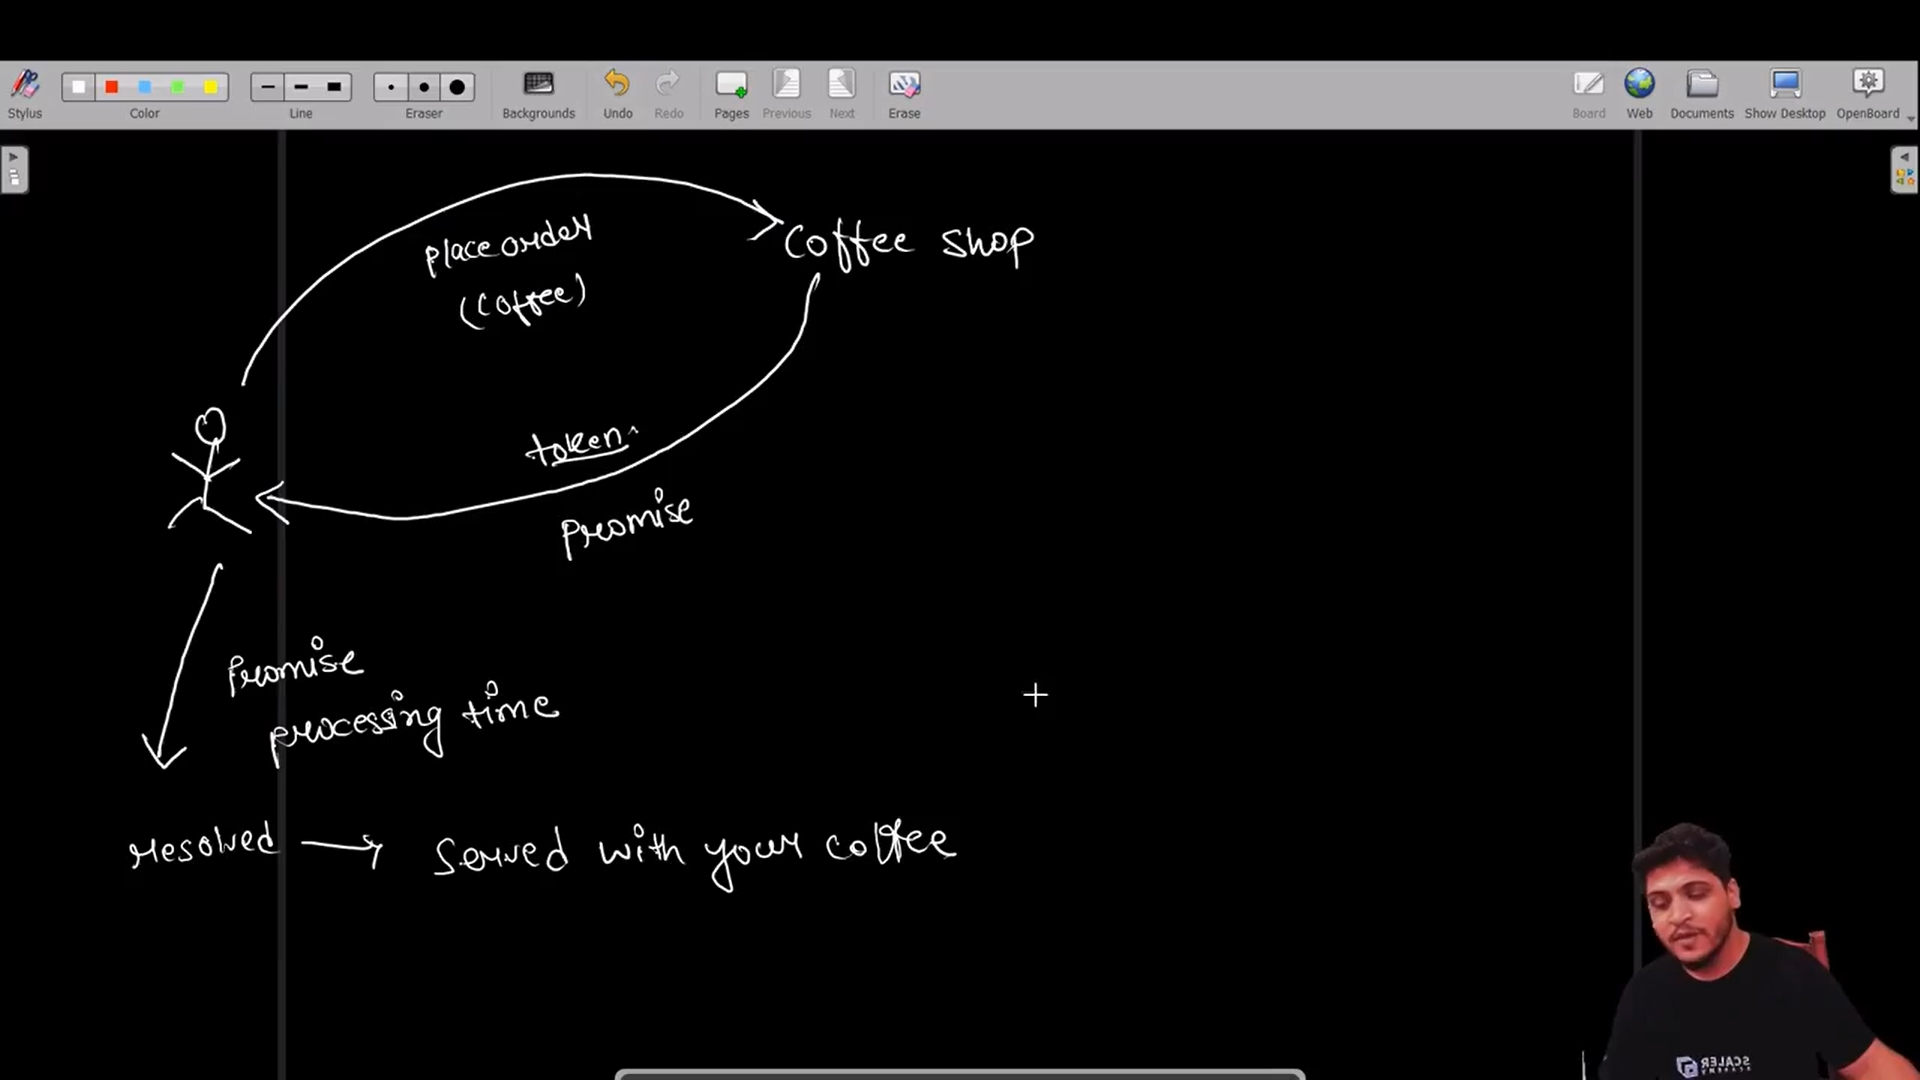 Stylus
Color
Line
Eraser
Backgrounds
Undo
Redo
Pages
Previous
Next
Erase
Board
Web
Documents
Show Desktop
OpenBoard
place order
(coffee)
Coffee shop
token
promise
Promise
processing time
resolved → Served with your coffee
SCALER
ACADEMY